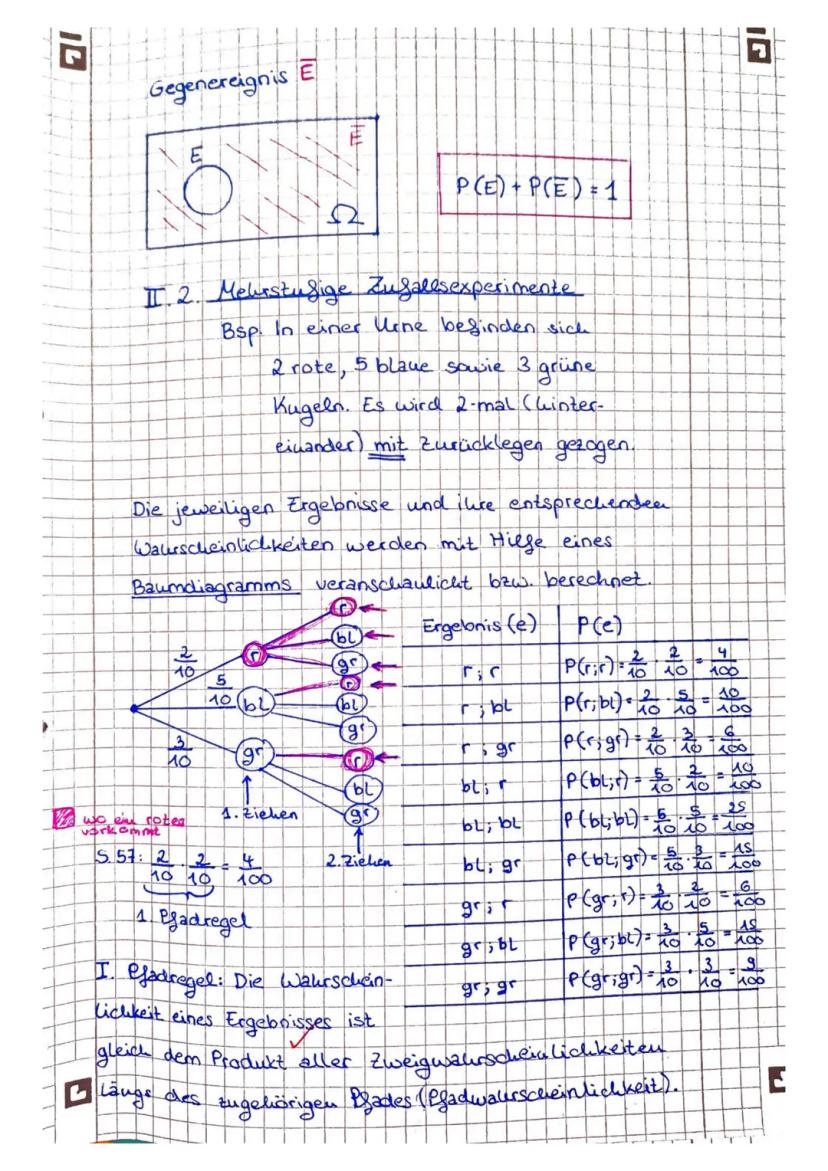 Gegenereignis E̅
E
E̅
Ω
P(E) + P(E̅) = 1
II. 2. Mehrstufige Zufallsexperimente
Bsp. In einer Urne befinden sich
2 rote, 5 blaue sowie 3 grüne
Kugeln. Es wird 2-mal (hinter-
einander) mit Zurücklegen gezogen.
Die jeweiligen Ergebnisse und ihre entsprechenden
Wahrscheinlichkeiten werden mit Hilfe eines
Baumdiagramms veranschaulicht bzw. berechnet.
2/10 r
5/10 bl
3/10 gr
r
bl
gr
r
bl
gr
r
bl
gr
1. Ziehen
2. Ziehen
Ergebnis (e) P(e)
r ; r P(r;r) = 2/10 · 2/10 = 4/100
r ; bl P(r;bl) = 2/10 · 5/10 = 10/100
r ; gr P(r;gr) = 2/10 · 3/10 = 6/100
bl ; r P(bl;r) = 5/10 · 2/10 = 10/100
bl ; bl P(bl;bl) = 5/10 · 5/10 = 25/100
bl ; gr P(bl;gr) = 5/10 · 3/10 = 15/100
gr ; r P(gr;r) = 3/10 · 2/10 = 6/100
gr ; bl P(gr;bl) = 3/10 · 5/10 = 15/100
gr ; gr P(gr;gr) = 3/10 · 3/10 = 9/100
wo ein rotes
vorkommt
S. 57: 2/10 · 2/10 = 4/100
1. Pfadregel
I. Pfadregel: Die Wahrschein-
lichkeit eines Ergebnisses ist
gleich dem Produkt aller Zweigwahrscheinlichkeiten
längs des zugehörigen Pfades (Pfadwahrscheinlichkeit).